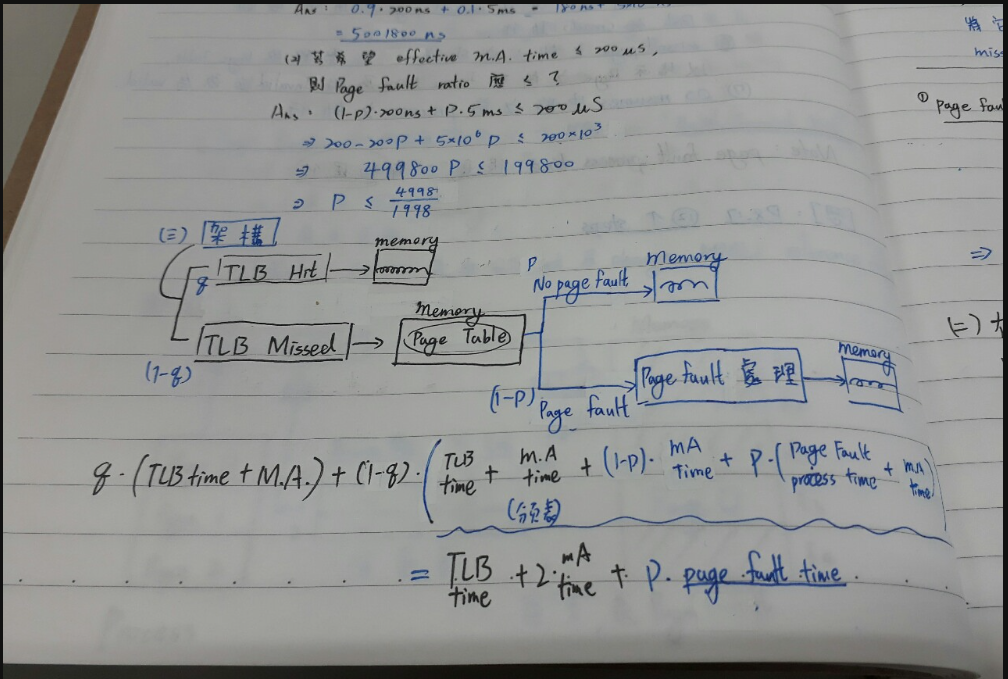 Ans : 0.9 · 200ns + 0.1 · 5ms = 180ns +
= 5001800 ns
(2) 若希望 effective m.A. time ≤ 200 μs,
則 Page fault ratio 應 ≤ ?
Ans : (1-p)·200ns + P·5ms ≤ 200 μS
⇒ 200-200P + 5×10⁶ P ≤ 200×10³
⇒ 499800 P ≤ 199800
⇒ P ≤ 4998/1998
(三) 架構
q TLB Hit → memory
(1-q) TLB Missed → Memory Page Table
P No page fault → Memory
(1-P) Page fault → Page fault 處理 → memory
q · (TLB time + M.A.) + (1-q) · (TLB time + M.A time + (1-p) · mA time + P · (Page Fault process time + mA time)
= TLB time + 2 · mA time + P · page fault time
將它
miss
① Page fau
⇒
(二)